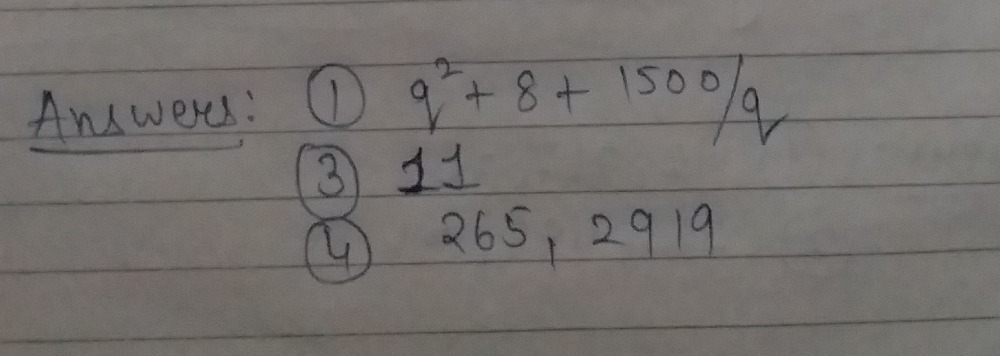 Answers: ① q² + 8 + 1500/q
③ 11
④ 265, 2919